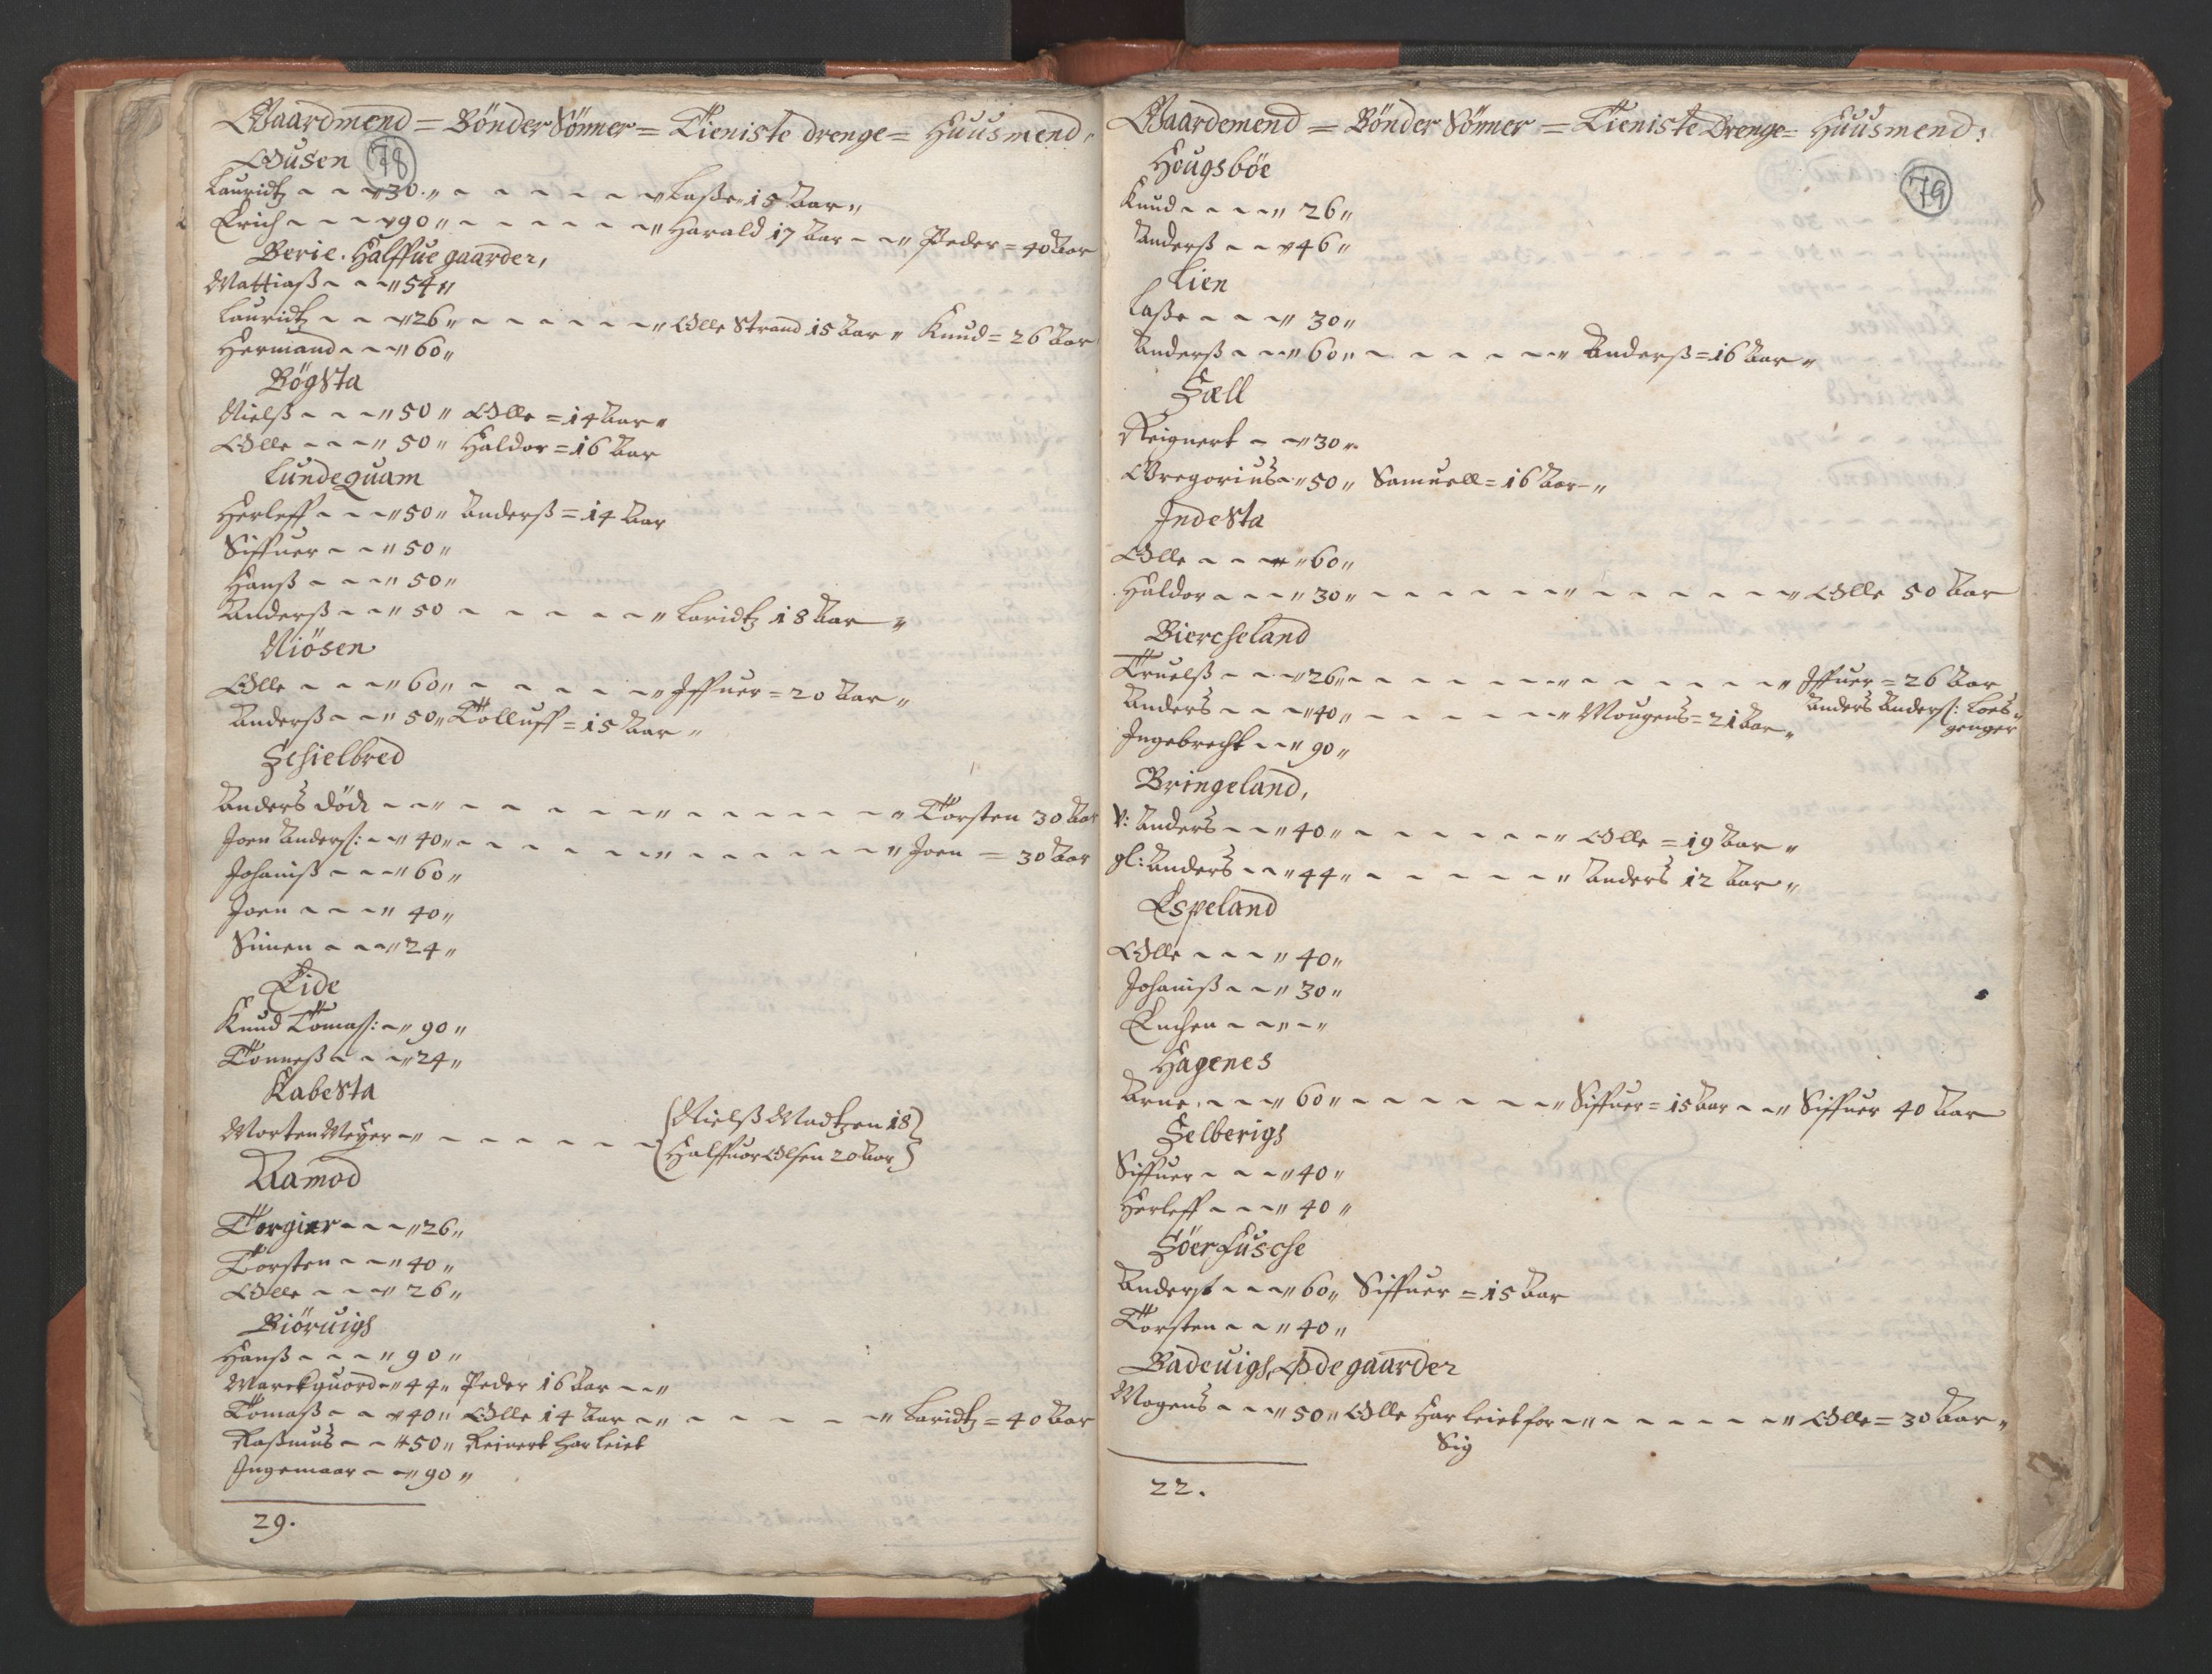 Gaardmend = Bönder Sönner = Tieniste drenge = Huusmend,
Gusen 78
Lauridtz - - - 30 - - - - - - Laße 15 Aar
Erich - - - 90 - - - - - - Harald 17 Aar - - Peder = 40 Aar
Berie. Halffue gaarder,
Mattiaß - - - 54
Lauridtz - - - 26 - - - - - - Olle Strand 15 Aar Knud = 26 Aar
Hermand - - - 60
Bögsta
Nielß - - - 50 Olle = 14 Aar
Olle - - - 50 Haldor = 16 Aar
Lundequam
Herleff - - - 50 Anderß = 14 Aar
Siffuer - - - 50
Hanß - - - 50
Anderß - - 50 - - - - - - Laridtz 18 Aar
Niösen
Olle - - - 60 - - - - - - Iffuer = 20 Aar
Anderß - - 50 Tolluff = 15 Aar
Schielbred
Anders död - - - - - - - - - - - - Torsten 30 Aar
Joen Anderß: - 40 - - - - - - - - - - - Joen = 30 Aar
Johaniß - - - 60
Joen - - - 40
Simen - - - 24
Eide
Knud Tomaß: - 90
Tönneß - - - 24
Kabesta
Morten Meyer - - - - - - - (Nielß Madtzen 18)
(Halffuor Olsen 20 Aar)
Aamod
Torgier - - - 26
Torsten - - 40
Olle - - - 26
Biöruigh
Hanß - - - 90
Marckquord - 44 Peder 16 Aar - -
Tomaß - - 40 Olle 14 Aar - - - - - - - Laridtz = 40 Aar
Raßmus - - 50 Reinert har leiet
Ingemaar - - 90
29.
Gaardemend = Bönder Sönner = Tieniste Drenge = Huusmend:
Hougsböe 79
Knud - - - - 26
Anderß - - 46
Lien
Laße - - - 30
Anderß - - - 60 - - - - - - Anderß = 16 Aar
Sæll
Reignert - - 30
Gregorius - 50 Samuell = 16 Aar -
Indesta
Olle - - - 60
Haldor - - - 30 - - - - - - - - - - - - Olle 50 Aar
Biercheland
Truelß - - - 26 - - - - - - - - - - - - Iffuer = 26 Aar
Anders - - - 40 - - - - - - Mougens = 21 Aar Anders Anderß: Loes-
Ingebrecht - - 90 genger
Bringeland,
V: Anders - - 40 - - - - - - Olle = 19 Aar
gl: Anders - - 44 - - - - - Anders 12 Aar
Espeland
Olle - - - 40
Johaniß - - 30
Enchen - - -
Hagenes
Arne - - - 60 - - - - - - Siffuer = 15 Aar - - Siffuer 40 Aar
Selberigs
Siffuer - - - 40
Herleff - - - 40
Söerfusche
Anderß - - - 60 Siffuer = 15 Aar
Torsten - - 40
Badeuigh, Ødegaarder
Mogens - - - 50 Olle Har leiet for - - - - - - - Olle = 30 Aar
Sig
22.